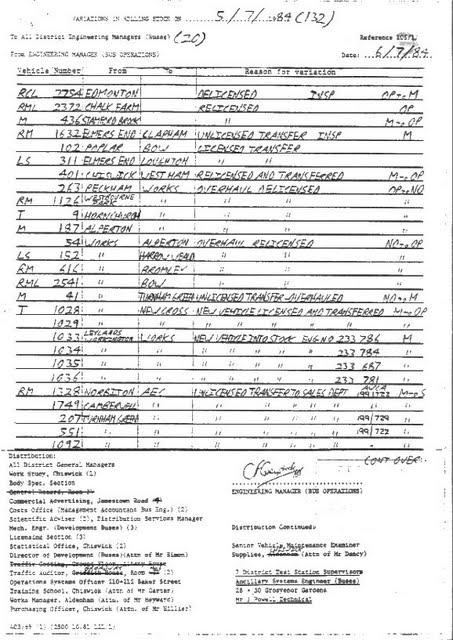 VARIATIONS IN ROLLING STOCK ON 5/7/1984 (132)
To All District Engineering Managers (Buses) (20)
From ENGINEERING MANAGER (BUS OPERATIONS) Date: 6/7/84
Vehicle Number From To Reason for variation
RCL 2254 EDMONTON DELICENSED INSP OP→M
RML 2372 CHALK FARM RELICENSED OP
M 436 STAMFORD BROOK " M→OP
RM 1632 ELMERS END CLAPHAM UNLICENSED TRANSFER INSP M
102 POPLAR BOW LICENSED TRANSFER
LS 311 ELMERS END LOUGHTON " "
401 CHISWICK WEST HAM RELICENSED AND TRANSFERRED M→OP
263 PECKHAM WORKS OVERHAUL DELICENSED OP→NO
RM 1126 WESTBOURNE PARK " " " "
T 9 HORNCHURCH " " " "
M 187 ALPERTON " " " "
54 WORKS ALPERTON OVERHAUL RELICENSED NO→OP
LS 152 " HARROW WEALD " " "
RM 616 " BROMLEY " " "
RML 2541 " BOW " " "
M 41 " TURNHAM GREEN UNLICENSED TRANSFER-OVERHAULED NO→M
T 1028 " NEW CROSS NEW VEHICLE LICENSED AND TRANSFERRED M→OP
1029 " " " " " " "
1033 LEYLANDS WORKINGTON WORKS NEW VEHICLE INTO STOCK ENG NO 233 786 M
1034 " " " " " " 233 784 "
1035 " " " " " " 233 687 "
1036 " " " " " " 233 781 "
RM 1328 NORBITON AEC UNLICENSED TRANSFER TO SALES DEPT 199/722 M→S
1749 CAMBERWELL " " " " " "
207 TURNHAM GREEN " " " " 199/729 "
551 " " " " " 199/722 "
1092 " " " " " "
CONT OVER
Distribution:
All District General Managers
Work Study, Chiswick (1)
Body Spec. Section
Central Record, Room
Commercial Advertising, Jamestown Road
Costs Office (Management Accountant Bus Eng.) (2)
Scientific Adviser (2), Distribution Services Manager
Mech. Engr. (Development Buses) (3)
Licensing Section (3)
Statistical Office, Chiswick (2)
Director of Development (Buses)(Attn of Mr Simon)
Traffic Auditor, Room
Operations Systems Officer 210-212 Baker Street
Training School, Chiswick (Attn of Mr Carter)
Works Manager, Aldenham (Attn of Mr Heyward)
Purchasing Officer, Chiswick (Attn of Mr Hillier)
ENGINEERING MANAGER (BUS OPERATIONS)
Distribution Continued:
Senior Vehicle Maintenance Examiner
Supplies, (Attn of Mr Dancy)
7 District Test Station Supervisors
Ancillary Systems Engineer (Buses)
28 - 30 Grosvenor Gardens
Mr J Powell Technical